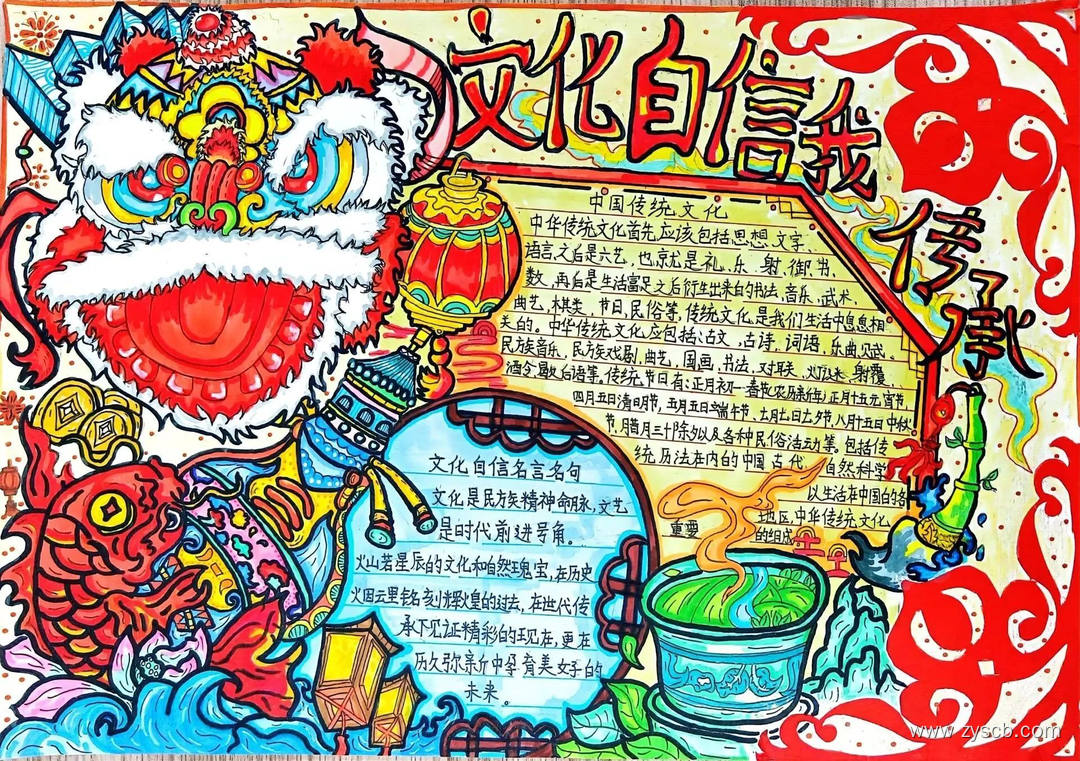 文化自信我
传承
中国传统文化
中华传统文化首先应该包括思想、文字、
语言,之后是六艺,也就是礼、乐、射、御、书、
数,再后是生活富足之后衍生出来的书法,音乐、武术、
曲艺、棋类、节日、民俗等。传统文化是我们生活中息息相
关的。中华传统文化应包括:古文、古诗、词语、乐曲、赋、
民族音乐、民族戏剧、曲艺、国画、书法、对联、灯谜、射覆、
酒令、歇后语等。传统节日有:正月初一春节(农历新年)、正月十五元宵节、
四月五日清明节、五月五日端午节、七月七日七夕节、八月十五日中秋
节、腊月三十除夕以及各种民俗活动等。包括传
统历法在内的中国古代 自然科学
以生活在中国的各
地区,中华传统文化
重要 的组成
文化自信名言名句
文化是民族精神命脉,文艺
是时代前进号角。
火山若星辰的文化和自然瑰宝,在历史
火因云里铭刻辉煌的过去,在世代传
承下见证精彩的现在,更在
历久弥新中孕育美好的
未来。
www.zyscb.com